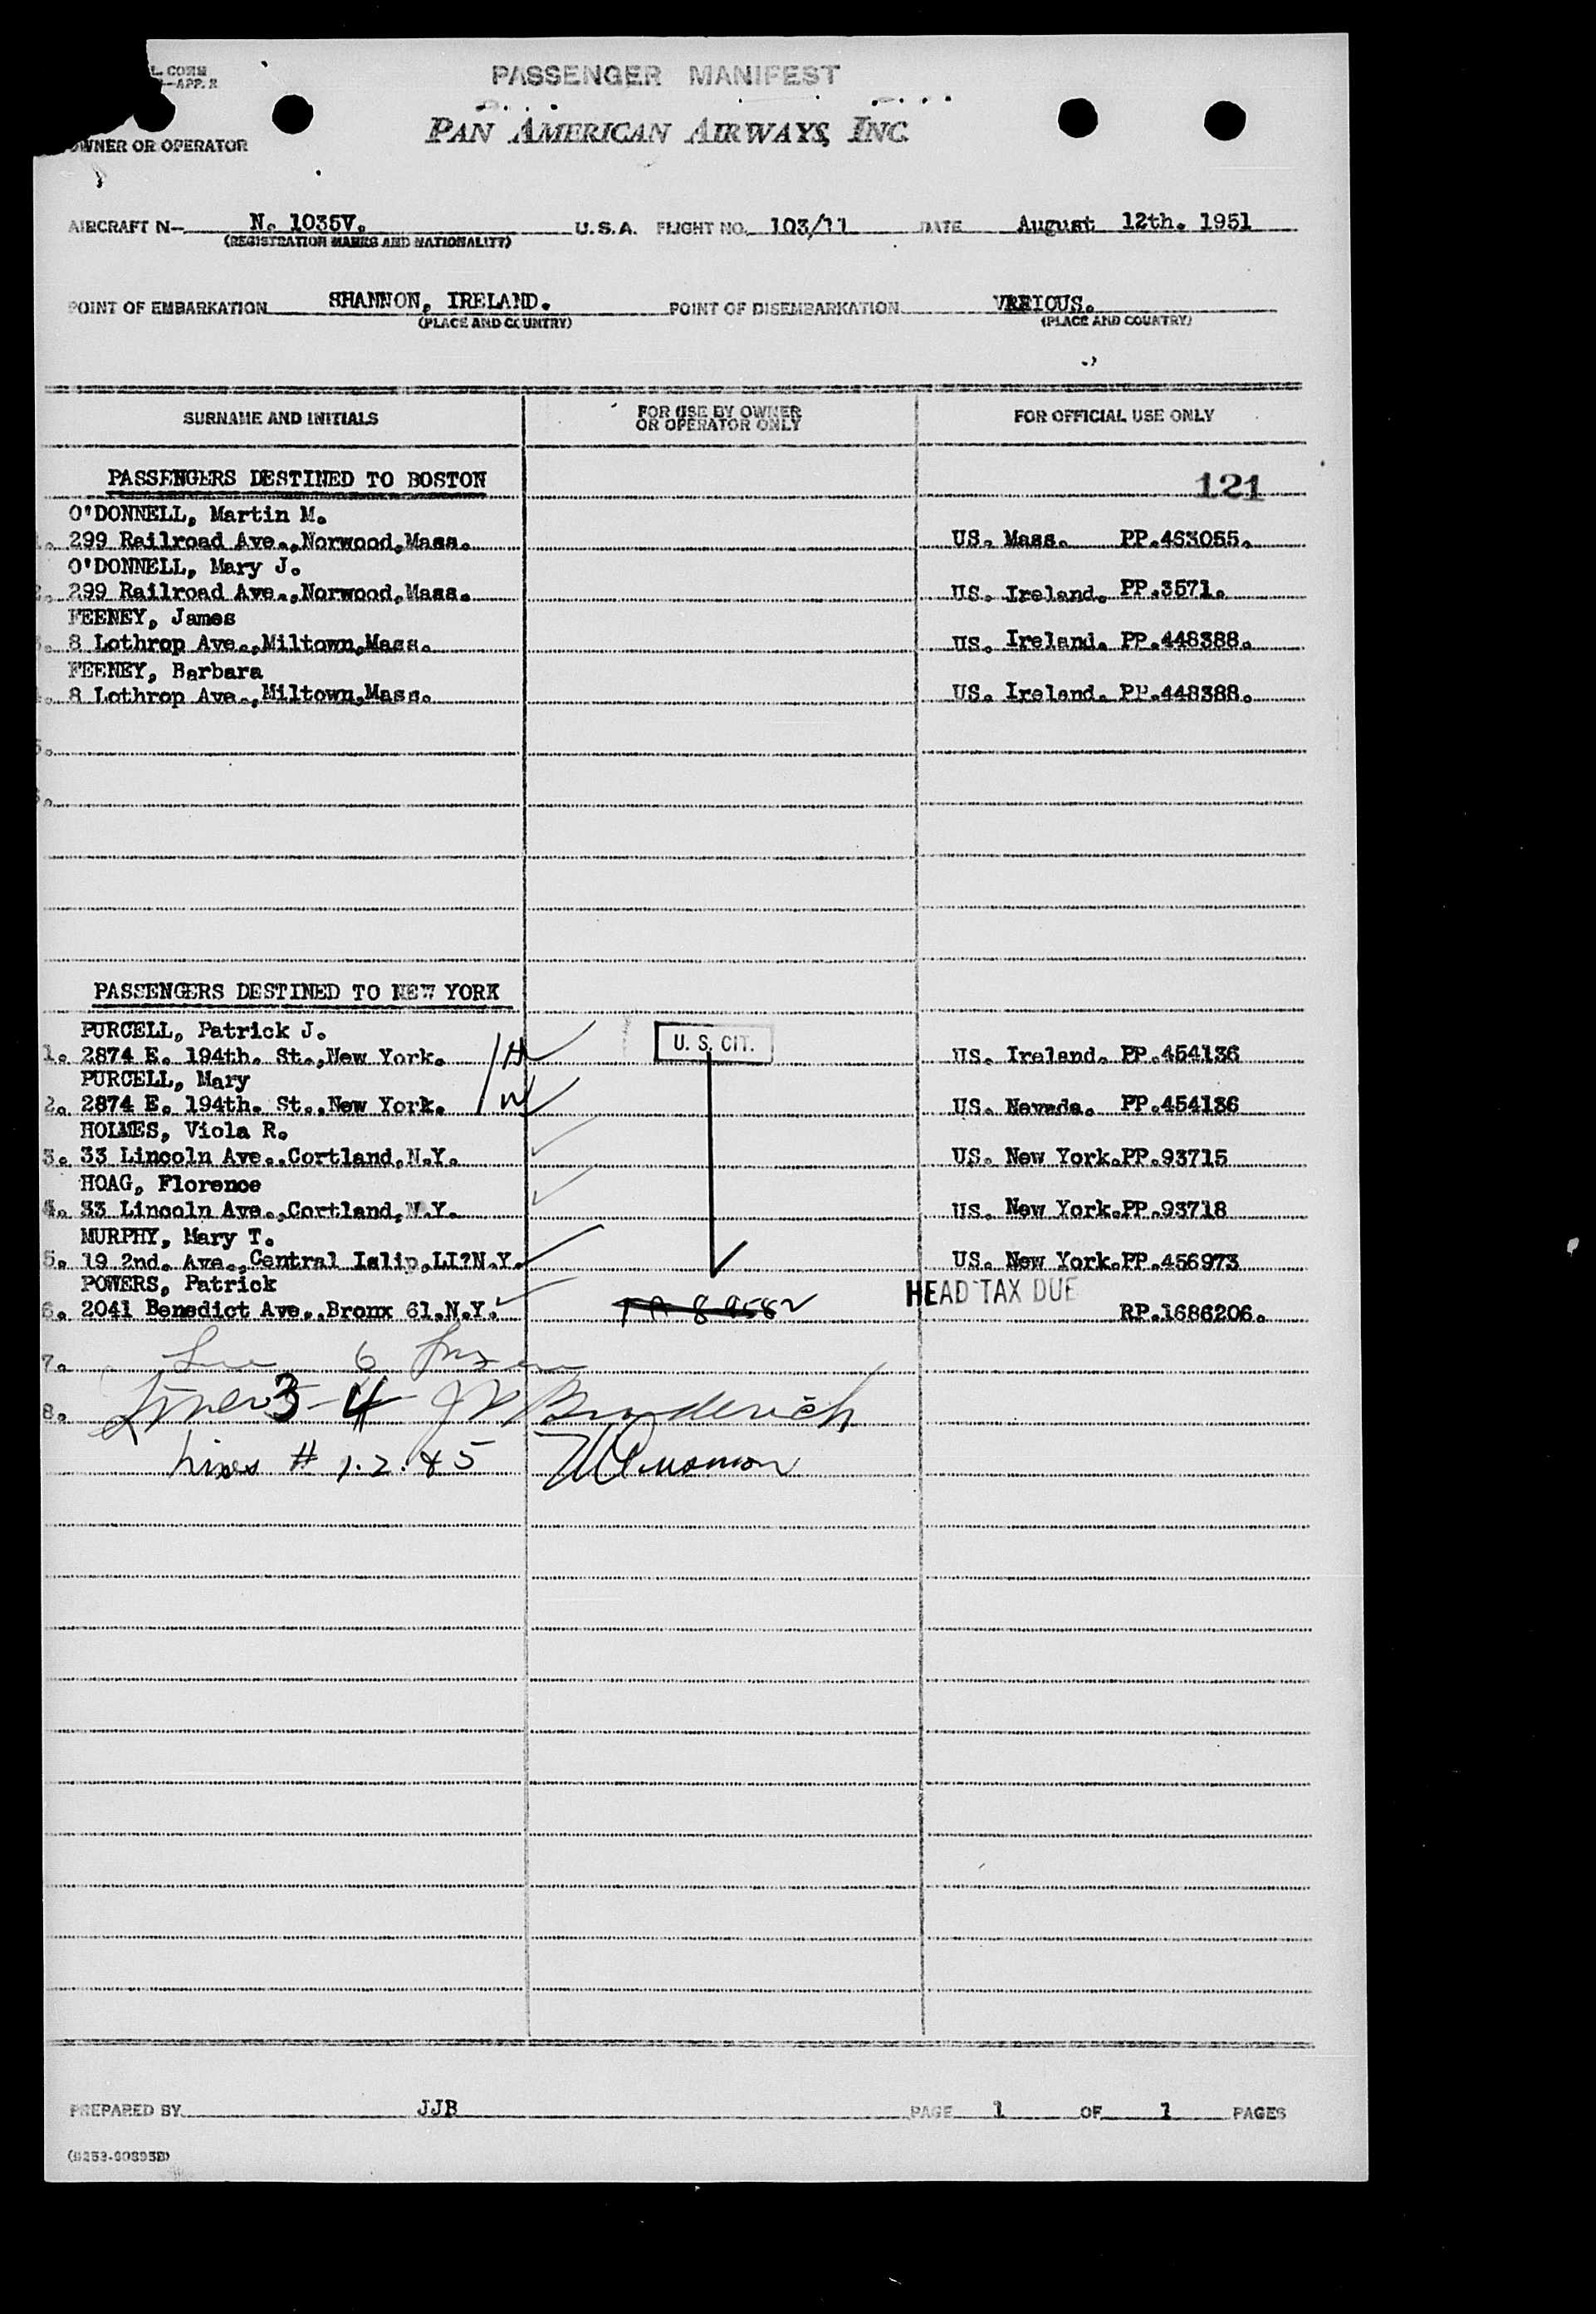 L. COMM
—APP. 2
PASSENGER MANIFEST
PAN AMERICAN AIRWAYS, INC.
OWNER OR OPERATOR
AIRCRAFT N— N. 1035V. U.S.A. FLIGHT NO. 103/11 DATE August 12th. 1951
(REGISTRATION MARKS AND NATIONALITY)
POINT OF EMBARKATION SHANNON, IRELAND. POINT OF DISEMBARKATION VREIOUS.
(PLACE AND COUNTRY) (PLACE AND COUNTRY)
SURNAME AND INITIALS FOR USE BY OWNER OR OPERATOR ONLY FOR OFFICIAL USE ONLY
PASSENGERS DESTINED TO BOSTON 121
O'DONNELL, Martin M.
1. 299 Railroad Ave.,Norwood,Mass. US. Mass. PP.463055.
O'DONNELL, Mary J.
2. 299 Railroad Ave.,Norwood,Mass. US. Ireland. PP.3571.
FEENEY, James
3. 8 Lothrop Ave.,Miltown,Mass. US. Ireland. PP.448388.
FEENEY, Barbara
4. 8 Lothrop Ave.,Miltown,Mass. US. Ireland. PP.448388.
5.
6.
PASSENGERS DESTINED TO NEW YORK
PURCELL, Patrick J.
1. 2874 E. 194th. St.,New York. H U. S. CIT. US. Ireland. PP.454136
PURCELL, Mary
2. 2874 E. 194th. St.,New York. W US. Nevada. PP.454136
HOLMES, Viola R.
3. 33 Lincoln Ave.,Cortland,N.Y. US. New York.PP.93715
HOAG, Florence
4. 33 Lincoln Ave.,Cortland,N.Y. US. New York.PP.93718
MURPHY, Mary T.
5. 19 2nd. Ave.,Central Islip,LI?N.Y. US. New York.PP.456973
POWERS, Patrick HEAD TAX DUE
6. 2041 Benedict Ave.,Bronx 61.N.Y. RP.1686206.
7. 6
8. Lines 3-4 Broderick
Lines # 1.2. & 5
PREPARED BY JJB PAGE 1 OF 1 PAGES